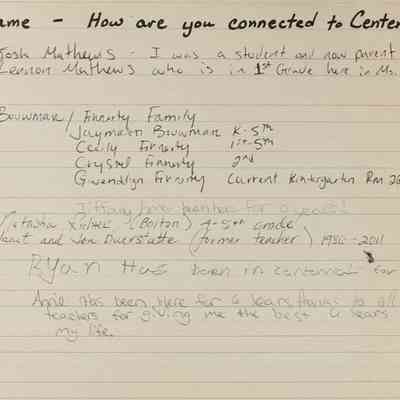 ame - How are you connected to Centen
Josh Mathews - I was a student and now parent
Lennon Mathews who is in 1st Grade here in Ms.
Bouwman / Finnerty Family
Jaymeson Bouwman K-5th
Cecily Finnerty 1st-5th
Crystel Finnerty 2nd
Gwendolyn Finnerty Current Kindergarten Rm 26
for 6 years!
Natasha (Bolton) 4-5th grade
Janet and Jon Duerstatte (former teacher) 1980-2011
Ryan Has been in centennial for
Annie Has been here for 6 Years thanks to all
teachers for giving me the best 6 years
my life.